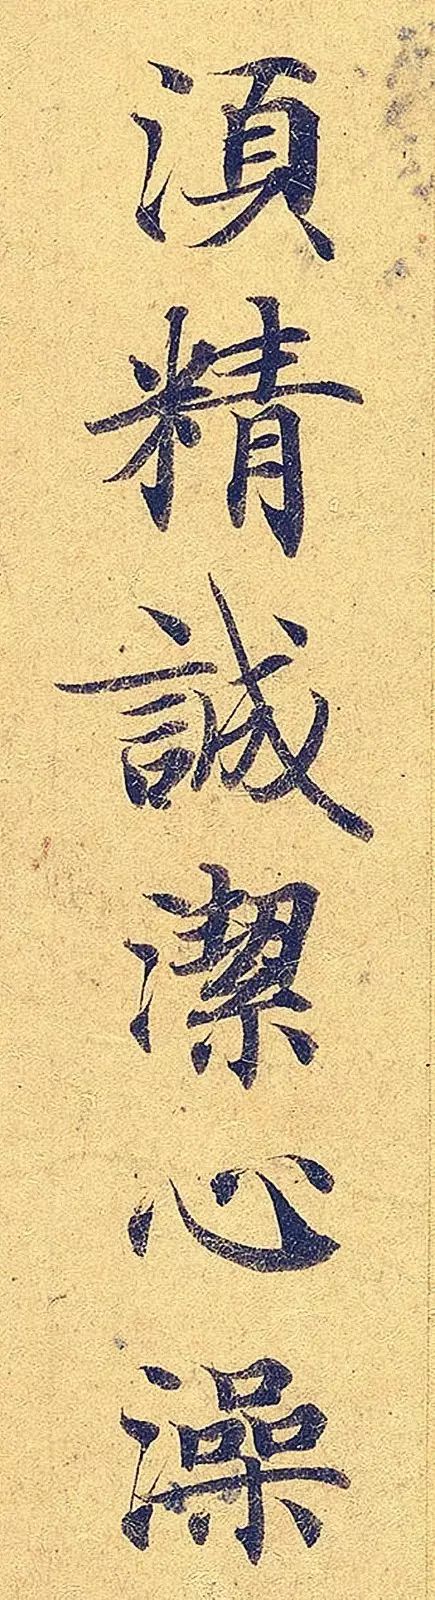 湏精誠潔心澡